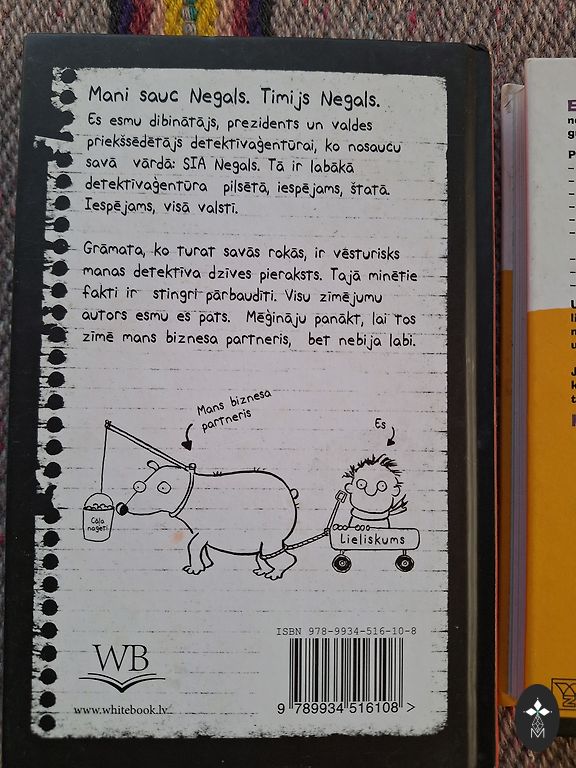 Mani sauc Negals. Timijs Negals.
Es esmu dibinātājs, prezidents un valdes
priekšsēdētājs detektīvaģentūrai, ko nosaucu
savā vārdā: SIA Negals. Tā ir labākā
detektīvaģentūra pilsētā, iespējams, štatā.
Iespējams, visā valstī.
Grāmata, ko turat savās rokās, ir vēsturisks
manas detektīva dzīves pieraksts. Tajā minētie
fakti ir stingri pārbaudīti. Visu zīmējumu
autors esmu es pats. Mēģināju panākt, lai tos
zīmē mans biznesa partneris, bet nebija labi.
Mans biznesa
partneris
Es
Cāļa
nageti
Lieliskums
WB
www.whitebook.lv
ISBN 978-9934-516-10-8
9 789934 516108 >
M